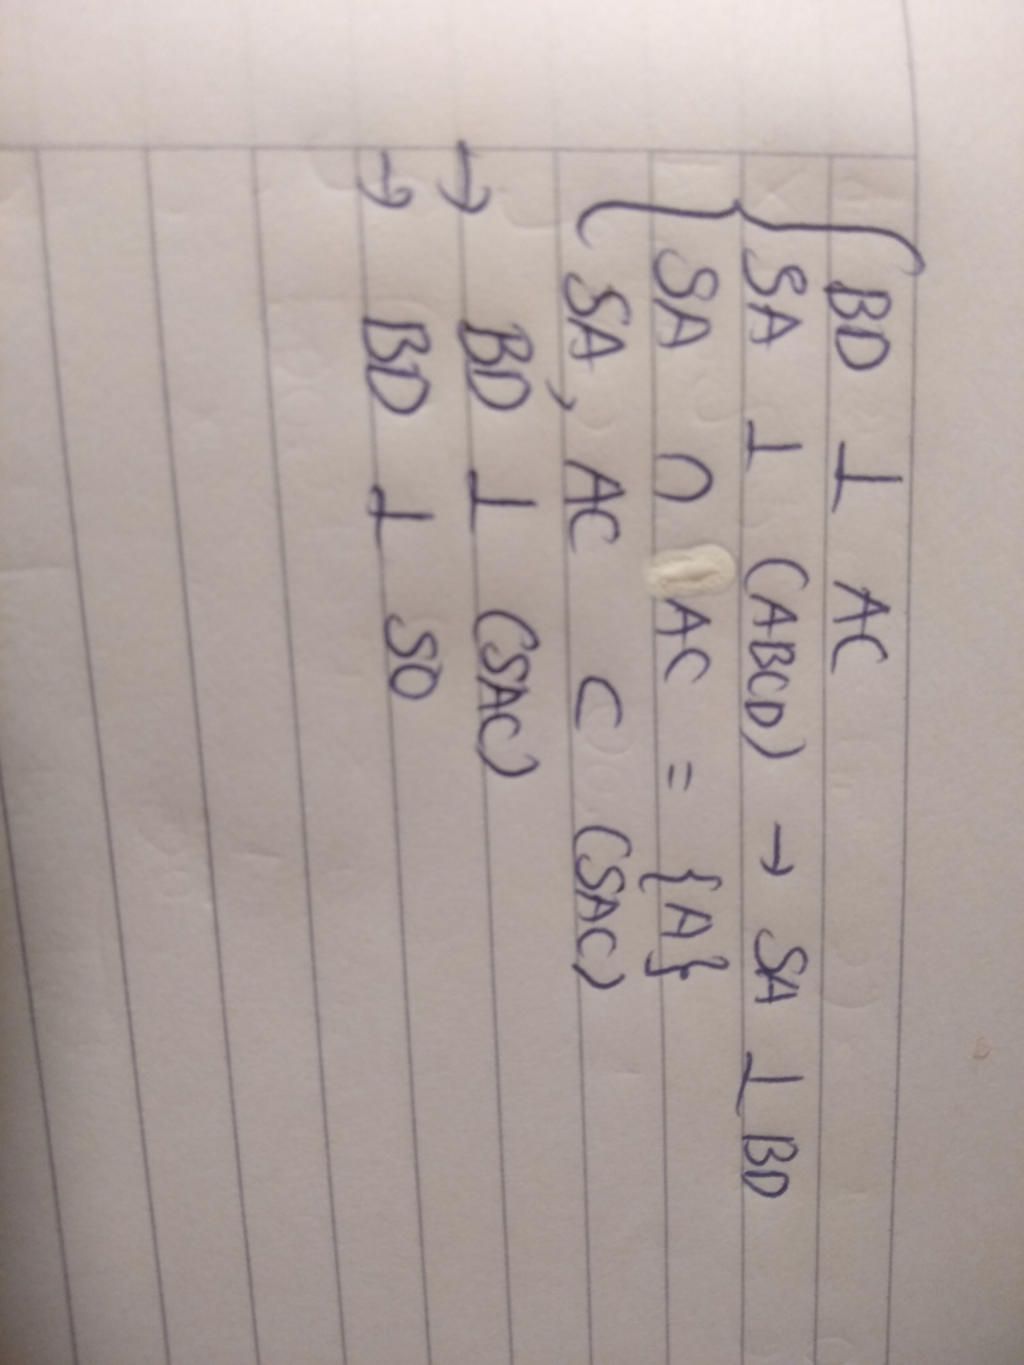 BD ⊥ AC
SA ⊥ (ABCD) → SA ⊥ BD
SA ∩ AC = {A}
SA, AC ⊂ (SAC)
→ BD ⊥ (SAC)
→ BD ⊥ SO